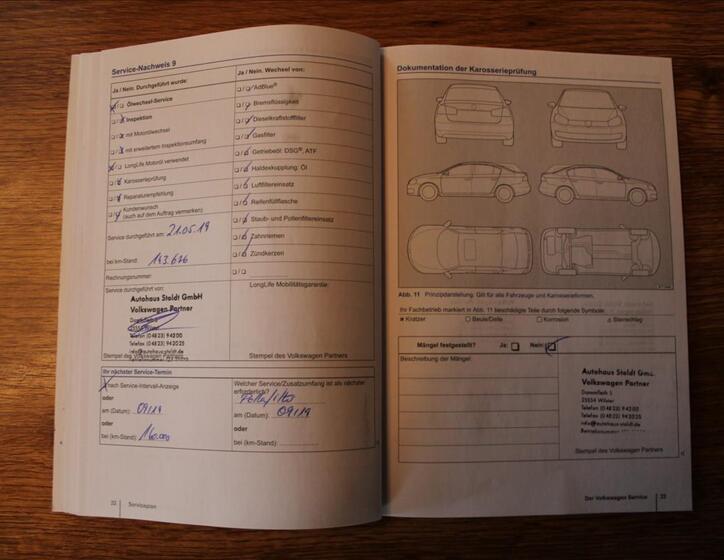 Service-Nachweis 9
Ja / Nein. Durchgeführt wurde:
Ölwechsel-Service
Inspektion
mit Motorölwechsel
mit erweitertem Inspektionsumfang
LongLife Motoröl verwendet
Karosserieprüfung
Reparaturempfehlung
Kundenwunsch
(auch auf dem Auftrag vermerken)
Service durchgeführt am: 21.05.19
bei km-Stand: 143.676
Rechnungsnummer:
Service durchgeführt von:
Autohaus Staldt GmbH
Volkswagen Partner
Telefon (04823) 94200
Telefax (04823) 942025
info@autohaus-staldt.de
Stempel des Volkswagen Partners
Ja / Nein. Wechsel von:
AdBlue®
Bremsflüssigkeit
Dieselkraftstofffilter
Gasfilter
Getriebeöl: DSG®, ATF
Haldexkupplung: Öl
Luftfiltereinsatz
Reifenfüllflasche
Staub- und Pollenfiltereinsatz
Zahnriemen
Zündkerzen
LongLife Mobilitätsgarantie:
Stempel des Volkswagen Partners
Ihr nächster Service-Termin
nach Service-Intervall-Anzeige
oder
am (Datum): 09/19
oder
bei (km-Stand): 160.000
Welcher Service/Zusatzumfang ist als nächster
erforderlich?
am (Datum): 09/19
oder
bei (km-Stand):
22 Serviceplan
Dokumentation der Karosserieprüfung
Abb. 11 Prinzipdarstellung: Gilt für alle Fahrzeuge und Karosserieformen.
Ihr Fachbetrieb markiert in Abb. 11 beschädigte Teile durch folgende Symbole:
Kratzer Beule/Delle Korrosion Steinschlag
Mängel festgestellt? Ja: Nein:
Beschreibung der Mängel:
Autohaus Staldt GmbH
Volkswagen Partner
Dammfleth 5
25554 Wilster
Telefon (04823) 94200
Telefax (04823) 942025
info@autohaus-staldt.de
Stempel des Volkswagen Partners
Der Volkswagen Service 23